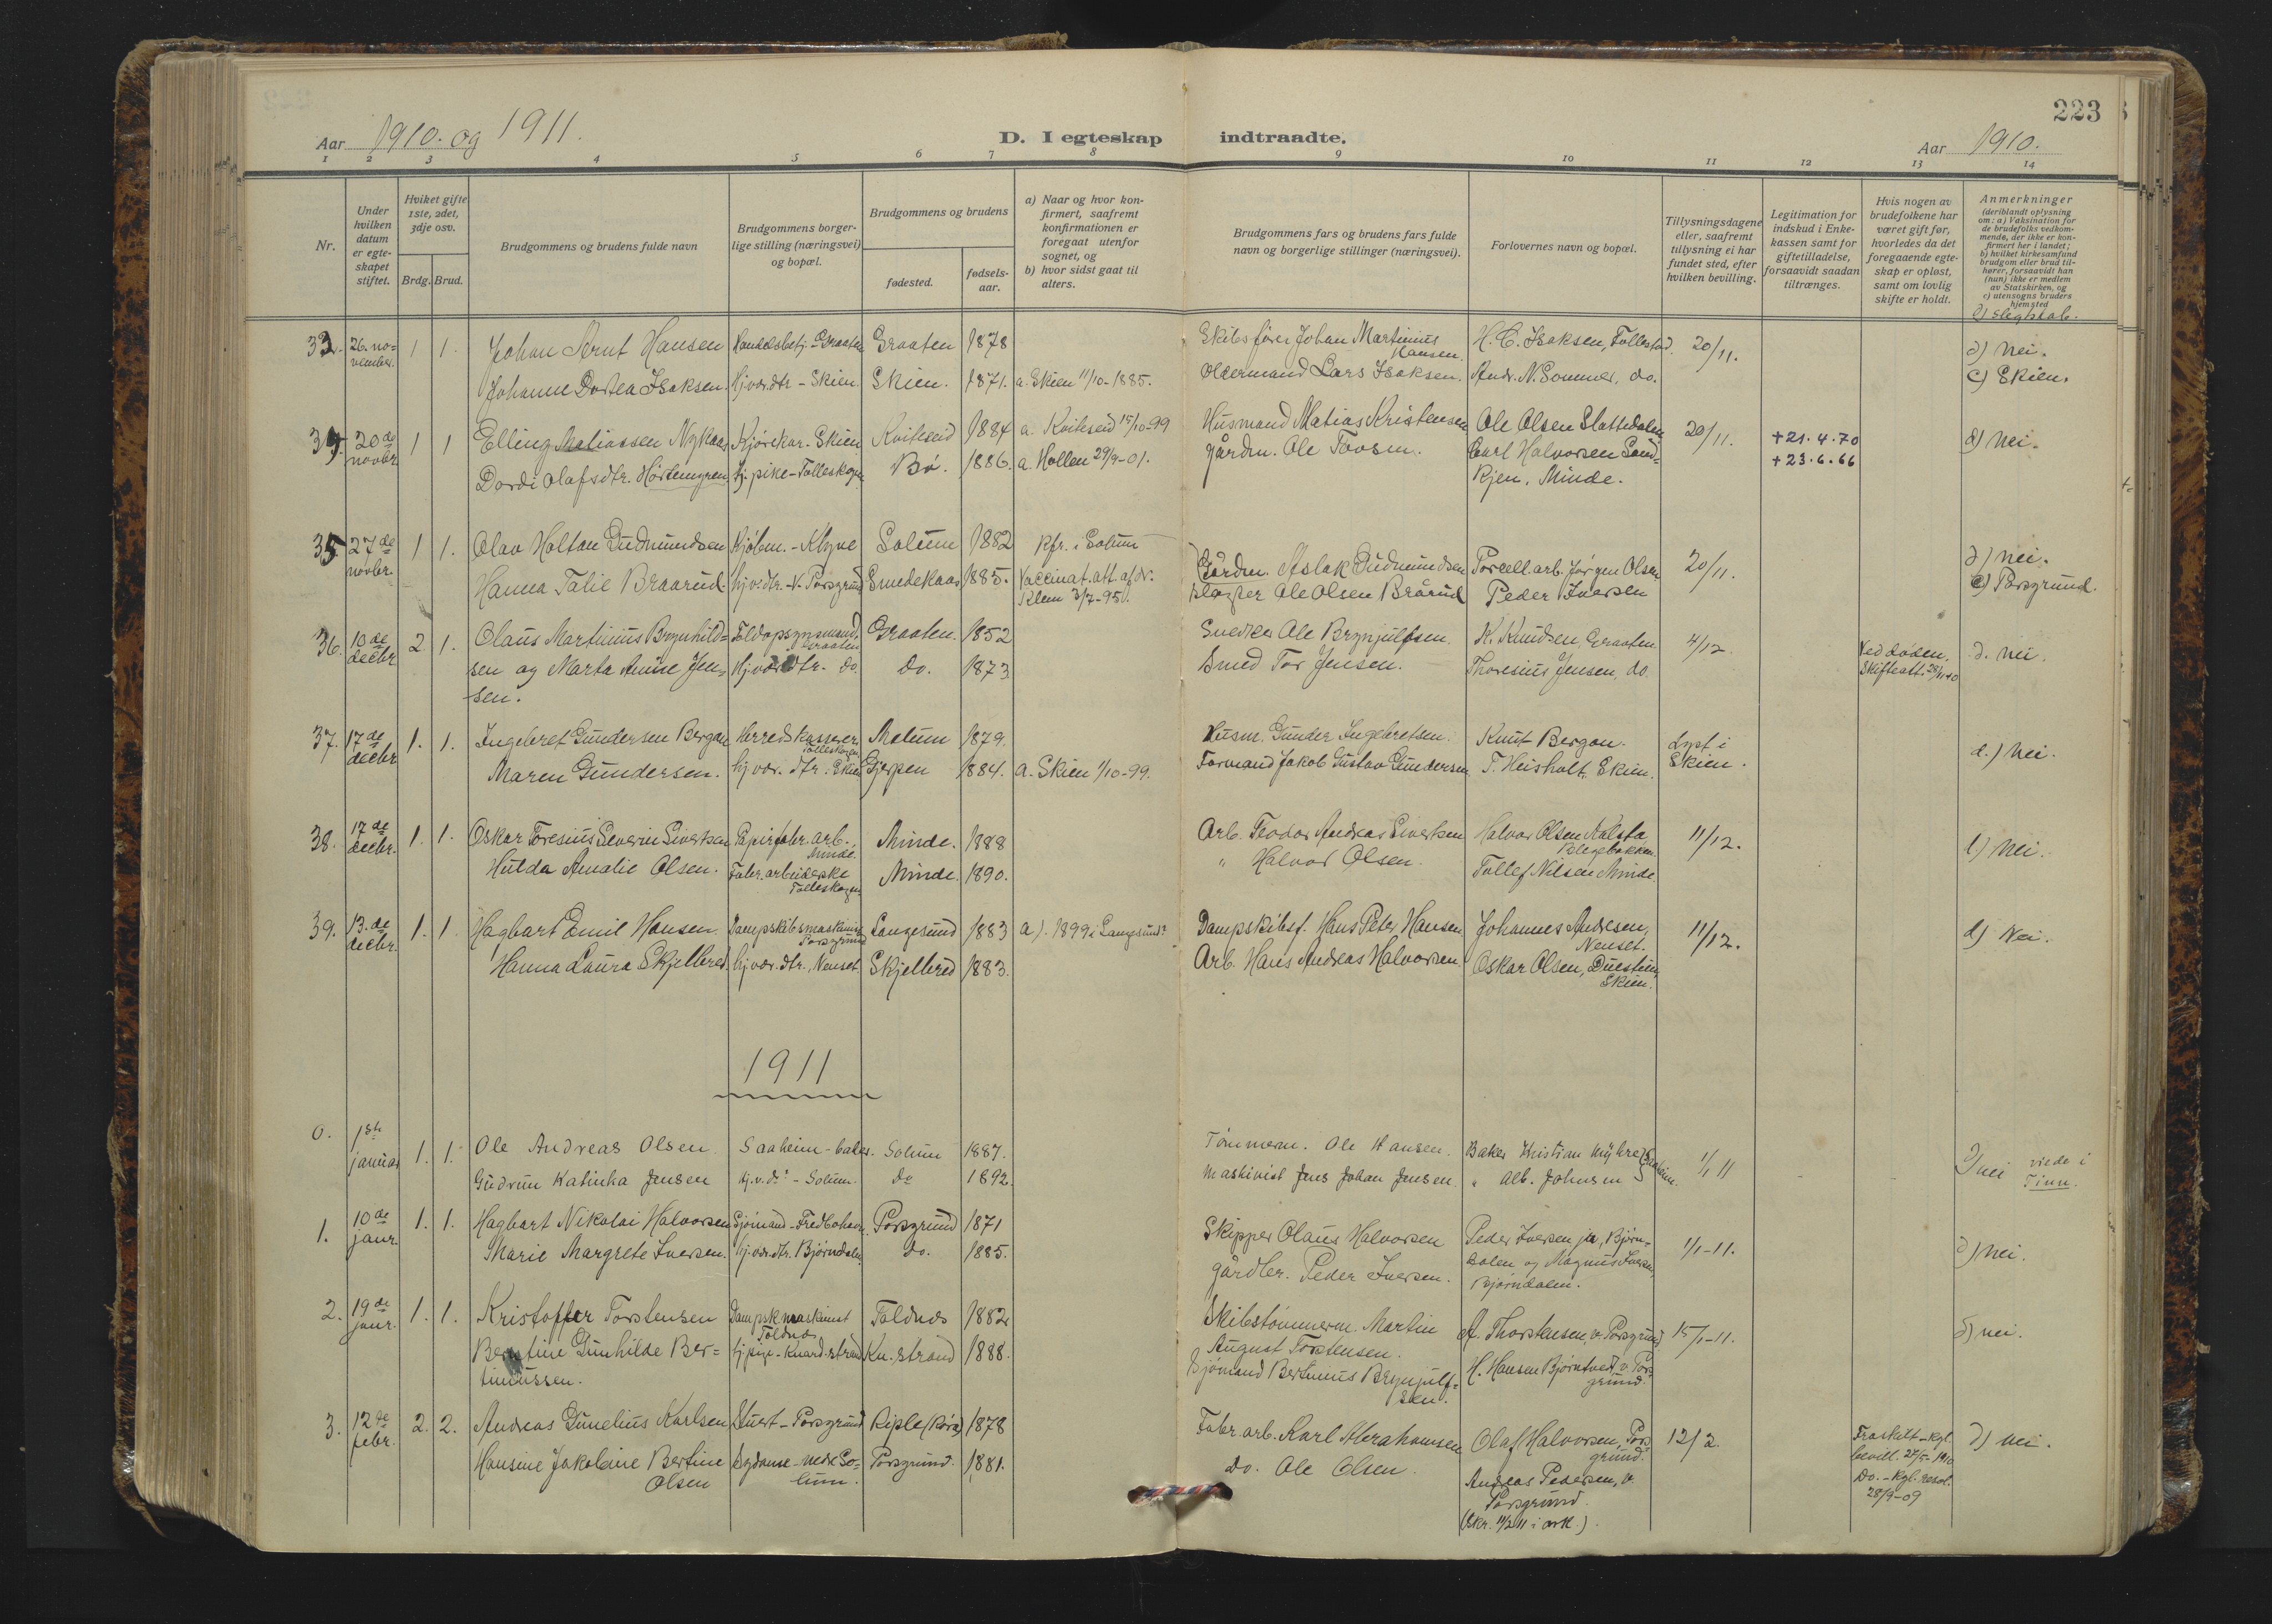 223
Aar 1910. og 1911.
D. I egteskap indtraadte.
Aar 1910.
1 2 3 4 5 6 7 8 9 10 11 12 13 14
Nr.
Under hvilken datum er egteskapet stiftet.
Hviket gifte 1ste, 2det, 3dje osv.
Brdg. Brud.
Brudgommens og brudens fulde navn
Brudgommens borgerlige stilling (næringsvei) og bopæl.
Brudgommens og brudens
fødested.
fødselsaar.
a) Naar og hvor konfirmert, saafremt konfirmationen er foregaat utenfor sognet, og
b) hvor sidst gaat til alters.
Brudgommens fars og brudens fars fulde navn og borgerlige stillinger (næringsvei).
Forlovernes navn og bopæl.
Tillysningsdagene eller, saafremt tillysning ei har fundet sted, efter hvilken bevilling.
Legitimation for indskud i Enkekassen samt for giftetilladelse, forsaavidt saadan tiltrænges.
Hvis nogen av brudefolkene har været gift før, hvorledes da det foregaaende egteskap er opløst, samt om lovlig skifte er holdt.
Anmerkninger
(deriblandt oplysning om: a) Vaksination for de brudefolks vedkommende, der ikke er konfirmert her i landet;
b) hvilket kirkesamfund brudgom eller brud tilhører, forsaavidt han (hun) ikke er medlem av Statskirken, og
c) utensogns bruders hjemsted
d) Slegtskab.
33. 26. november. 1 1. Johan Arnt Hansen Handelsbetj. - Graaten Graaten 1878 Skibsfører Johan Martinius Hansen. H. C. Isaksen, Follestad. 20/11. d) Nei.
Johanne Dortea Isaksen. Hjv. dtr - Skien. Skien. 1871. a. Skien 11/10-1885. Oldermand Lars Isaksen. Andr. N. Sommer, do. c) Skien.
34. 20de novbr 1 1 Elling Matiassen Nykaas Kjørekar. Skien. Kviteseid 1884 a. Kviteseid 15/10-99 Husmand Matias Kristensen Ole Olsen Slattedalen 20/11. +21.4.70 d) Nei.
Dordi Olafsdtr. Hortemyren. tj. pike - Tolleskogen Bø. 1886. a. Hollen 29/9-01. gårdm. Ole Tovsen. Carl Halvorsen Sand- +23.6.66
kjen, Minde.
35. 27de novbr. 1 1. Olav Holtan Gudmundsen Kjøbm. - Klyve Solum 1882 kfr. i Solum Gårdm. Aslak Gudmundsen Porcell. arb. Jørgen Olsen 20/11. d) Nei.
Hanna Talie Braarud. hjv. dtr. - V. Porsgrund Smedekaas 1885. Vaccinat. att. af dr. Klem 3/7-95. Slagter Ole Olsen Brårud Peder Iversen c) Porsgrund.
36. 10de decbr 2. 1. Olaus Martinius Brynhild- Toldopsynsmand, Graaten Graaten. 1852 Snedker Ole Brynjulfsen. K. Knudsen, Graaten. 4/12. Ved døden. d. nei.
sen og Marta Amine Jen- Hjv. dtr. do. do. 1873 Smed Tor Jensen. Thoresius Jensen, do. Skifteatt. 28/11-10
sen.
37. 17de decbr 1. 1. Ingebret Gundersen Bergan Herredskasserer. Tolleskogen Melum 1879. Husm. Gunder Ingebretsen. Knut Bergan. Lyst i d.) Nei.
Maren Gundersen. hj. vær. dtr. Skien Gjerpen 1884. a. Skien 1/10-99. Formand Jakob Gustav Gundersen T. Heisholt, Skien. Skien.
38. 17de decbr. 1. 1. Oskar Toresius Severin Sivertsen Papirfabr. arb., Minde. Minde. 1888 Arb. Teodor Andreas Sivertsen Halvor Olsen Aalsta 11/12. d) Nei.
Hulda Amalie Olsen. Fabr. arbeiderske Tolleskogen Minde. 1890. " Halvor Olsen. Tollef Nilsen Minde.
39. 13.de decbr. 1. 1 Hagbart Emil Hansen. Dampskibsmaskinist Porsgrund Langesund 1883 a). 1899 i Langesund Dampskibsf. Hans Peter Hansen Johannes Andresen, Nenset. 11/12. d) Nei.
Hanna Laura Skjelbred. hj vær. dtr., Nenset. Skjelbred 1883. Arb. Hans Andreas Halvorsen. Oskar Olsen, Duestien, Skien.
1911
0. 1ste januar 1. 1. Ole Andreas Olsen Saaheim - baker. Solum 1887. Tømmerm. Ole Hansen. Baker Kristian Myhre Saaheim. 1/1 11 d) nei viede i Tinn.
Gudrun Katinka Jensen hj. v. dr - Solum. do 1892. Maskinist Jens Johan Jensen. " Alb. Johnsen
1. 10de janr 1. 1. Hagbart Nikolai Halvorsen Sjømand - Fredbohavn. Porsgrund 1871 Skipper Olaus Halvorsen Peder Iversen jr., Bjørn- 1/1-11. d) Nei.
Marie Margrete Iversen. hj. vær. dtr. Bjørndalen do. 1885. gårdbr. Peder Iversen. dalen og Magnus Iversen,
Bjørndalen.
2. 19de janr. 1. 1. Kristoffer Torstensen Dampsk. maskinist Toldnes Toldnes 1882 Skibstømmerm. Martin A. Thorstensen, v. Porsgrund 15/1-11. d) nei.
Berntine Gunhilde Ber- tj. pige - Knard. strand Kn. strand 1888. August Torstensen. H. Hansen Bjørntvedt, v. Pors-
tinussen. Sjømand Bertinius Brynjulf- grund.
sen.
3. 12te febr. 2. 2. Andreas Gunelius Karlsen Stuert - Porsgrund Riple (Kørå) 1878 Fabr. arb. Karl Abrahamsen Olaf Halvorsen, Pors- 12/2. Fraskilt - kgl. d) nei.
Hansine Jakobine Bertine Sydame - nedre So- Porsgrund. 1881. do. Ole Olsen. grund. bevill. 27/5-1910
Olsen lum. Andreas Pedersen, v. Do. - kgl. resol.
Porsgrund. 28/9-09
(skr. 11/2 11 i ark.)